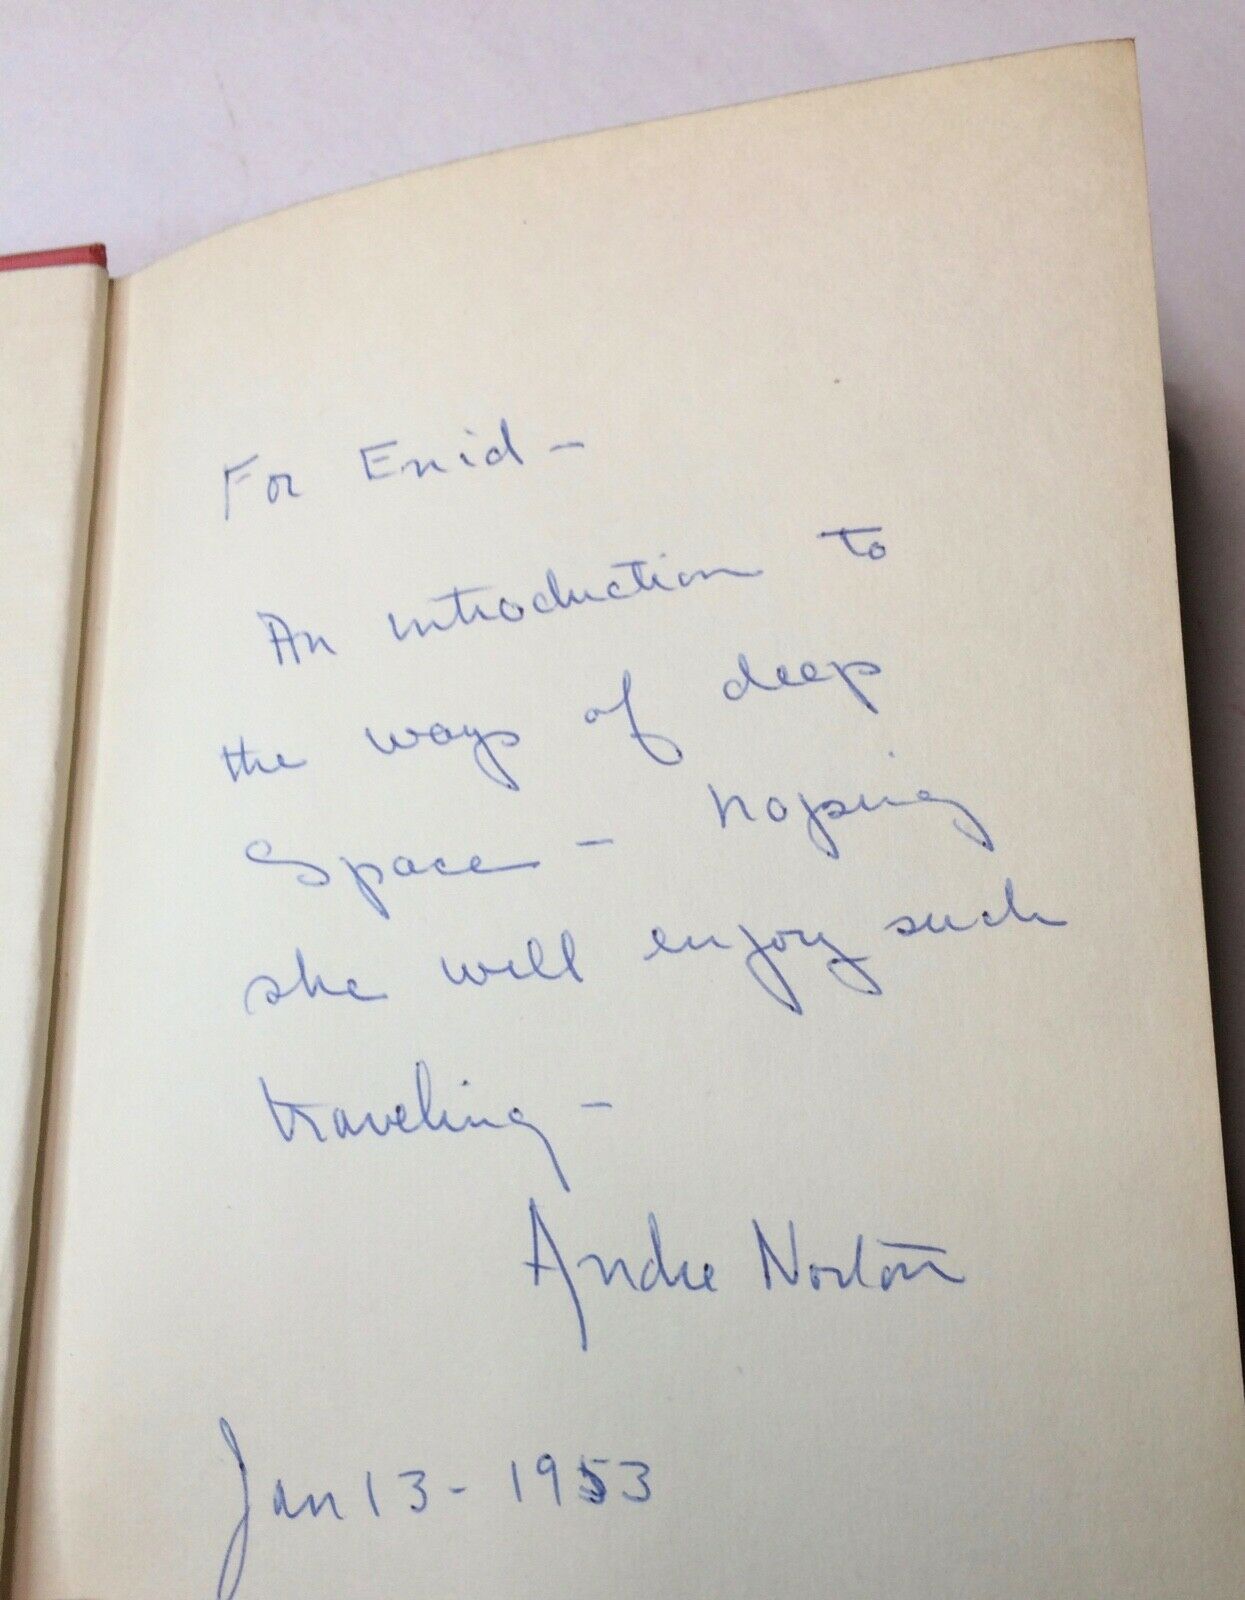 For Enid –
An introduction to
the ways of deep
Space – hoping
she will enjoy such
traveling –
Andre Norton
Jan 13 - 1953